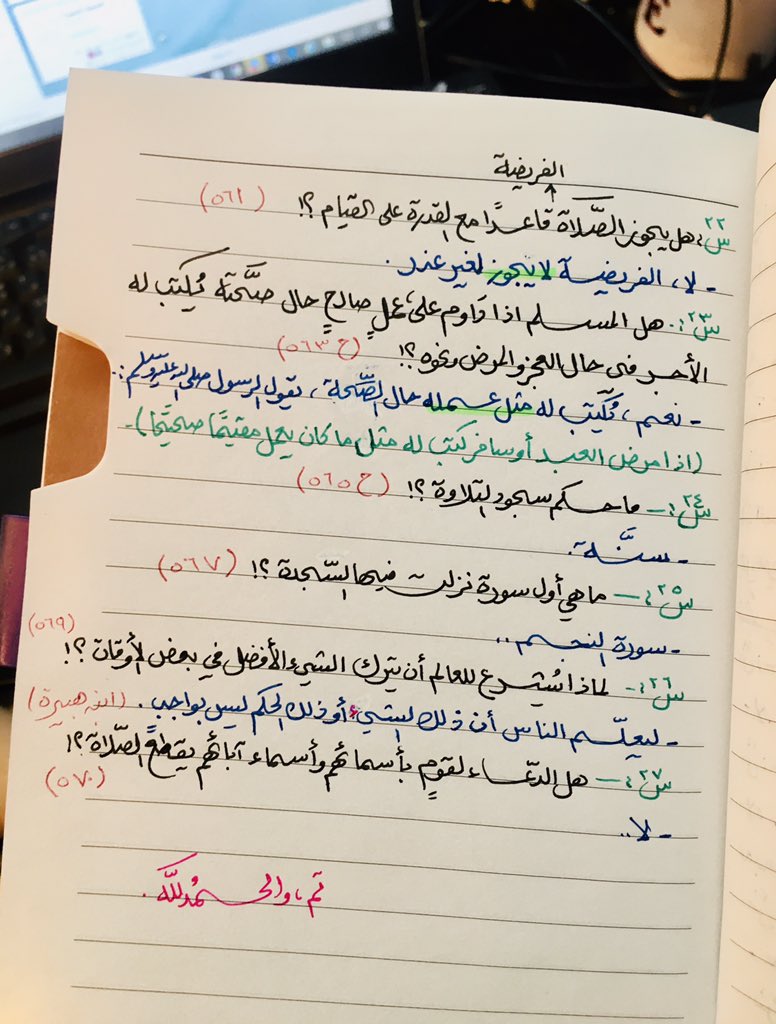 الفريضة
س٢٢: هل يجوز الصَّلاة قاعدًا مع القدرة على القيام ؟! (٥٦١)
- لا، الفريضة لا يجوز لغير عذر.
س٢٣: هل المسلم اذا داوم على عملٍ صالحٍ حال صحَّتة يُكتب له
الأجر في حال العجز والمرض ونحوه ؟! (ح ٥٦٣)
- نعم، يُكتب له مثل عمله حال الصَّحة، يقول الرسول صلى الله عليه وسلم:
(اذا مرض العبد أو سافر كتب له مثل ما كان يعمل مقيمًا صحيحًا).
س٢٤: - ما حكم سجود التلاوة ؟! (ح ٥٦٥)
- سنَّة.
س٢٥: - ما هي أول سورة نزلت فيها السَّجدة ؟! (٥٦٧)
- سورة النجم..
(٥٦٩)
س٢٦: - لماذا يُشرع للعالم أن يترك الشيء الأفضل في بعض الأوقات ؟!
- ليعلّم الناس أن ذلك الشيء أو ذلك الحكم ليس بواجب. (ابن هبيرة)
س٢٧: - هل الدعاء لقومٍ بأسمائهم وأسماء آبائهم يقطع الصَّلاة ؟!
(٥٧٠)
- لا..
تم، والحمدُ للَّه.